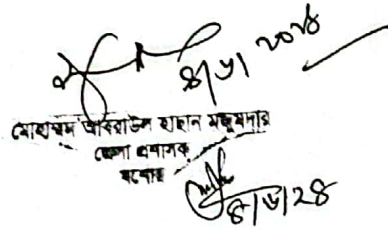 ৪/৬/২০২৪
মোহাম্মদ আবরাউল হাছান মজুমদার
জেলা প্রশাসক
যশোর
৪/৬/২৪